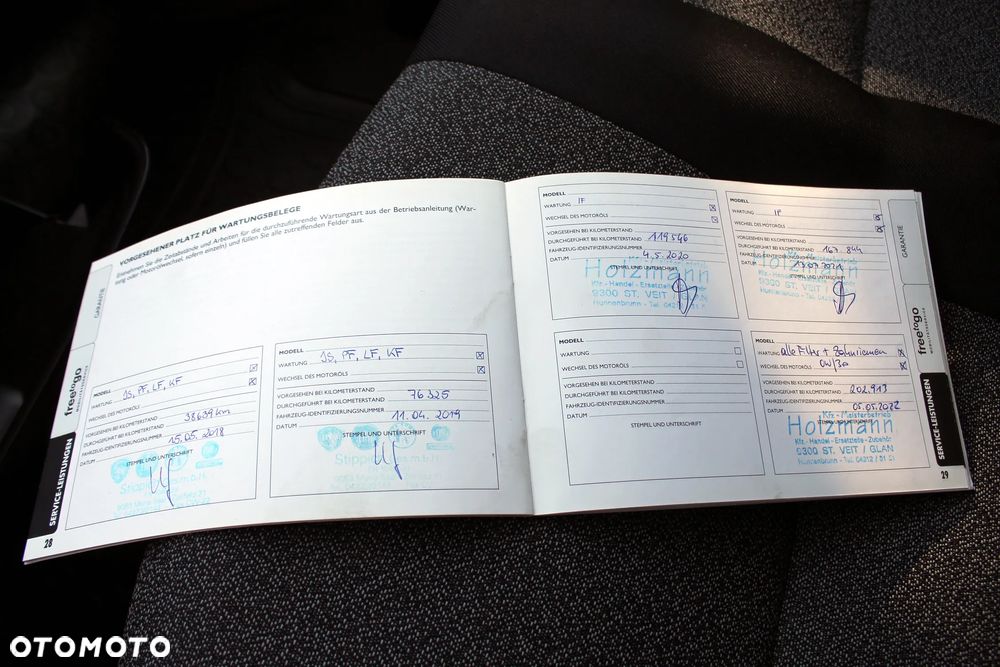 VORGESEHENER PLATZ FÜR WARTUNGSBELEGE
Entnehmen Sie die Zeitabstände und Arbeiten für die durchzuführende Wartungsart aus der Betriebsanleitung (War-
tung oder Motorölwechsel, sofern einzeln) und füllen Sie alle zutreffenden Felder aus.
GARANTIE
free to go
SERVICE-LEISTUNGEN
MODELL
WARTUNG JS, PF, LF, KF
WECHSEL DES MOTORÖLS
VORGESEHEN BEI KILOMETERSTAND
DURCHGEFÜHRT BEI KILOMETERSTAND 38639 km
FAHRZEUG-IDENTIFIZIERUNGSNUMMER
DATUM 15.05.2018
STEMPEL UND UNTERSCHRIFT
MODELL
WARTUNG JS, PF, LF, KF
WECHSEL DES MOTORÖLS
VORGESEHEN BEI KILOMETERSTAND
DURCHGEFÜHRT BEI KILOMETERSTAND 76325
FAHRZEUG-IDENTIFIZIERUNGSNUMMER
DATUM 11.04.2019
STEMPEL UND UNTERSCHRIFT
28
MODELL
WARTUNG IF
WECHSEL DES MOTORÖLS
VORGESEHEN BEI KILOMETERSTAND
DURCHGEFÜHRT BEI KILOMETERSTAND 119546
FAHRZEUG-IDENTIFIZIERUNGSNUMMER
DATUM 4.5.2020
STEMPEL UND UNTERSCHRIFT
Holzmann
Kfz.-Handel - Ersatzteile
9300 ST. VEIT / GLAN
Hunnenbrunn - Tel.
MODELL
WARTUNG IF
WECHSEL DES MOTORÖLS
VORGESEHEN BEI KILOMETERSTAND
DURCHGEFÜHRT BEI KILOMETERSTAND 167.844
DATUM
Holzmann
9300 ST. VEIT
Hunnenbrunn - Tel.
MODELL
WARTUNG
WECHSEL DES MOTORÖLS
VORGESEHEN BEI KILOMETERSTAND
DURCHGEFÜHRT BEI KILOMETERSTAND
FAHRZEUG-IDENTIFIZIERUNGSNUMMER
DATUM
STEMPEL UND UNTERSCHRIFT
MODELL
WARTUNG alle Filter + Zahnriemen
WECHSEL DES MOTORÖLS 0W/30
VORGESEHEN BEI KILOMETERSTAND
DURCHGEFÜHRT BEI KILOMETERSTAND 202.913
FAHRZEUG-IDENTIFIZIERUNGSNUMMER
DATUM 05.05.2022
Kfz - Meisterbetrieb
Holzmann
Kfz.-Handel - Ersatzteile - Zubehör
9300 ST. VEIT / GLAN
Hunnenbrunn - Tel. 04212 / 
GARANTIE
free to go
SERVICE-LEISTUNGEN
29
OTOMOTO